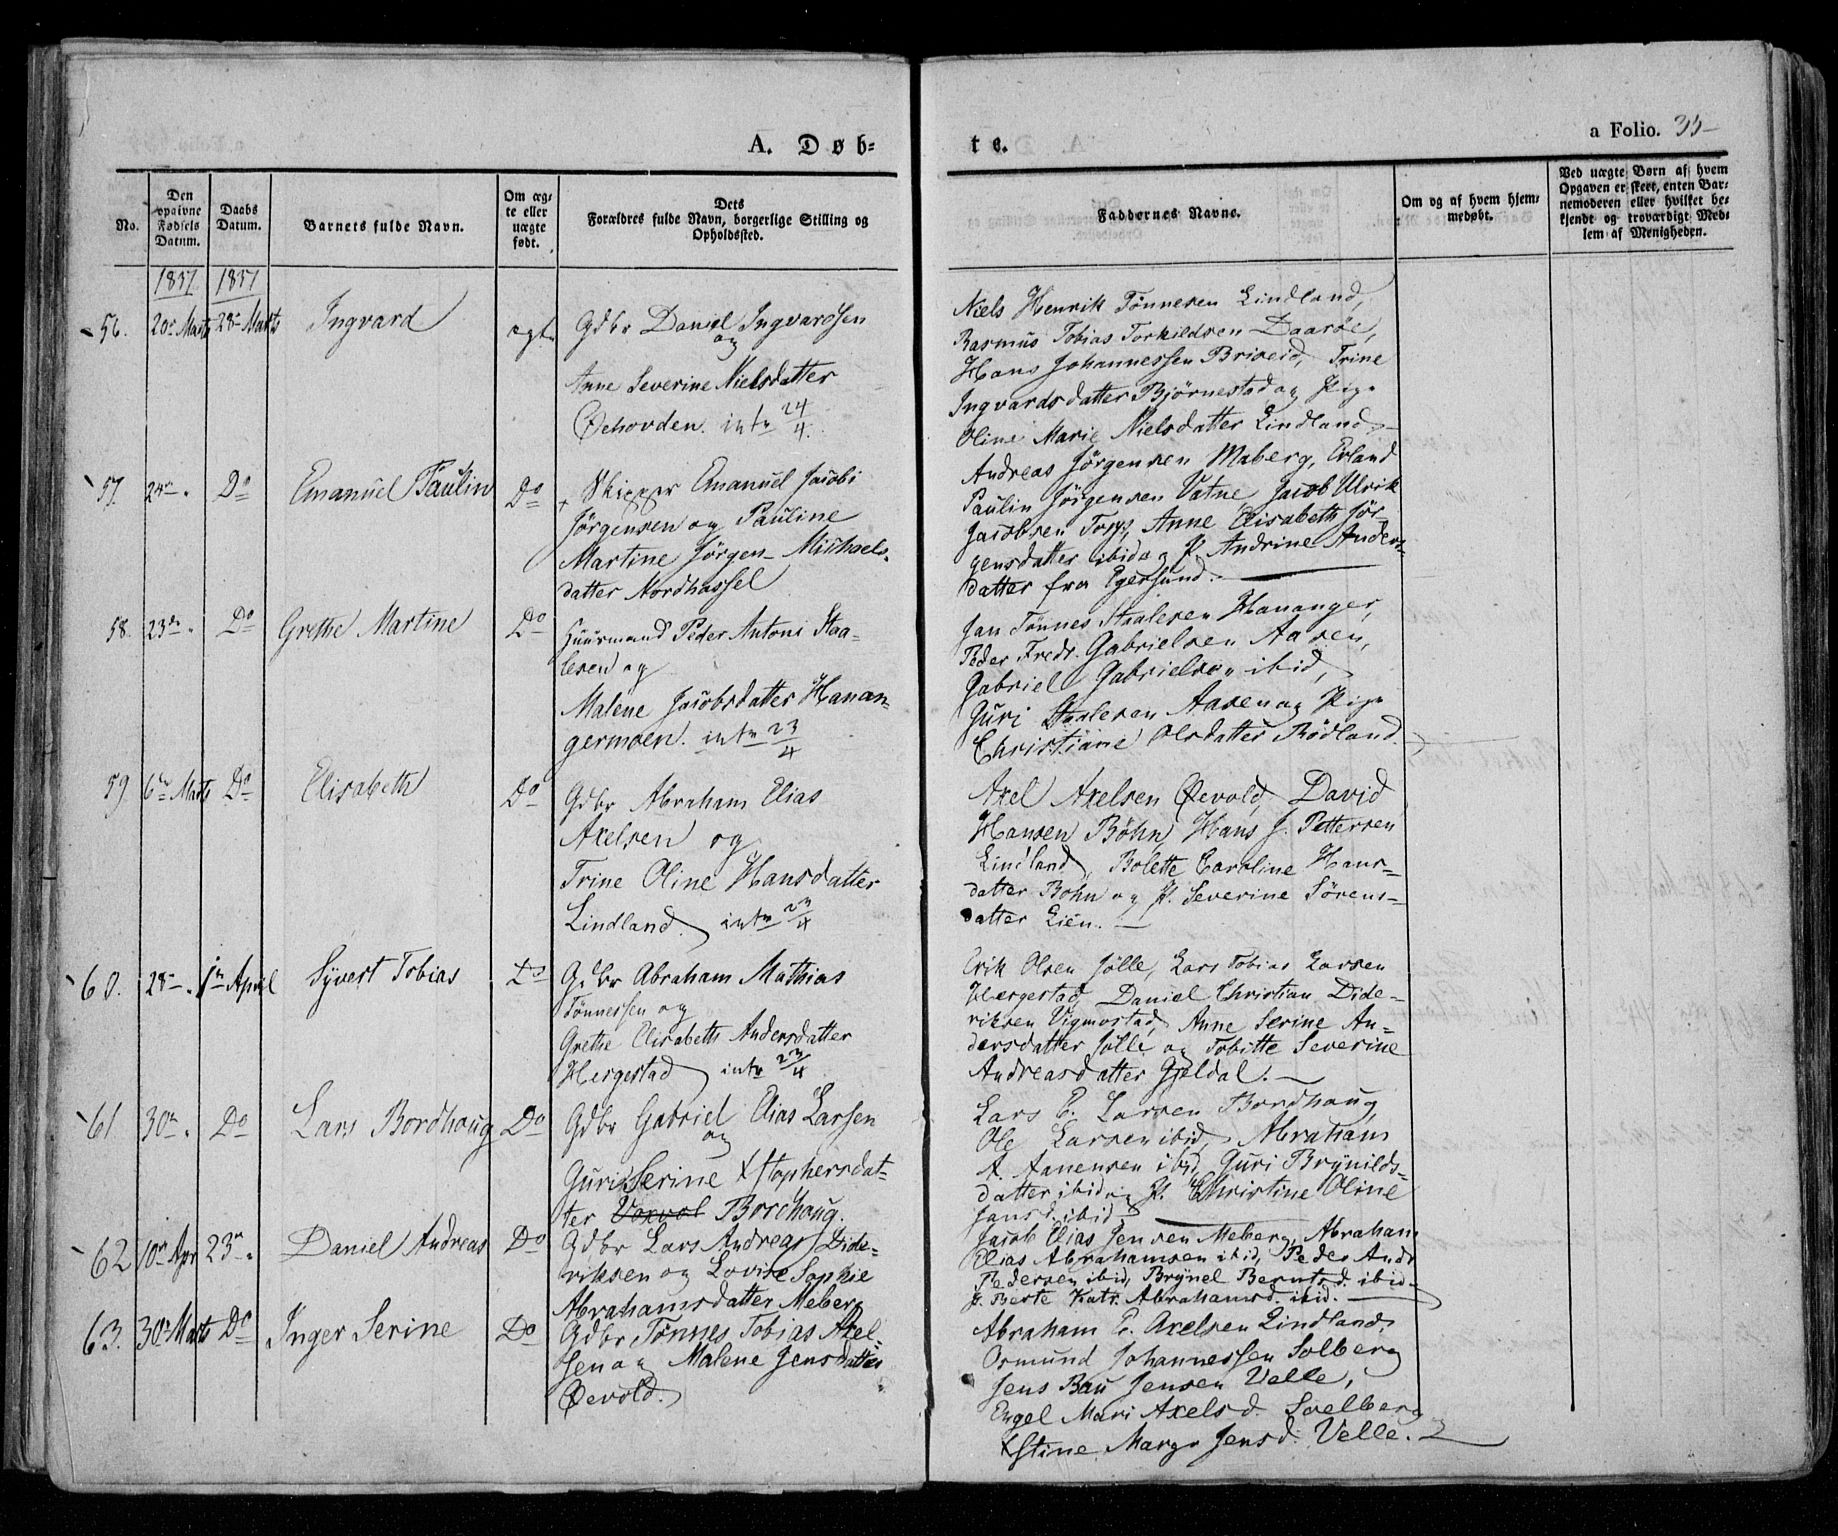 A. Døb-
te.
a Folio. 35
No.
Den
opgivne
Fødsels
Datum.
Daabs
Datum.
Barnets fulde Navn.
Om æg-
te eller
uægte
født.
Dets
Forældres fulde Navn, borgerlige Stilling og
Opholdssted.
Faddernes Navne.
Om og af hvem hjem-
medøbt.
Ved uægte Børn af hvem
Opgaven er skeet, enten Bar-
nemoderen eller hvilket be-
kjendt og troværdigt Med-
lem af Menigheden.
1837 1837
56. 20de Marts 28de Marts Ingvard ægte Gdbr Daniel Ingvardsen
og
Anne Severine Nielsdatter
Øehovden. intr 24/4.
Niels Henrik Tönnesen Lindland,
Rasmus Tobias Torkildsen Daarøe,
Hans Johannessen Briseid, Trine
Ingvardsdatter Bjørnestad og Pige
Oline Marie Nielsdatter Lindland
57. 24de Do Emanuel Paulin Do Skipper Emanuel Jacobi
Jörgensen og Pauline
Martine Jörgen Michaels-
datter Nordhassel
Andreas Jörgensen Maberg, Erland
Paulin Jörgensen Vatne, Jacob Ulrik
Jacobsen Torp, Anne Elisabeth Jör-
gensdatter ibid og P. Andrine Anders-
datter fra Egersund.
58. 23de Do Grethe Martine Do Huusmand Peder Antoni Staa-
lesen og
Malene Jacobsdatter Hanan-
germoen. intr 23/4
Jan Tönnes Staalesen Hananger,
Peder Fredr. Gabrielsen Aasen,
Gabriel Gabrielsen ibid,
Guri Staalesen Aasen og Pige
Christiane Olsdatter Rödland.
59 6te Marts Do Elisabeth Do Gdbr Abraham Elias
Axelsen og
Trine Oline Hansdatter
Lindland. intr 23/4
Axel Axelsen Øevold, David
Hansen Böhn, Hans J. Pettersen
Lindland, Bolette Caroline Hans-
datter Bohn og P. Severine Sörens-
datter Eien.
60. 28de 1ste April Syvert Tobias Do Gdbr Abraham Mathias
Tönnessen og
Grethe Elisabeth Andersdatter
Hergestad intr 23/4
Erik Olsen Jölle, Lars Tobias Larsen
Hergestad, Daniel Christian Dide-
riksen Vigmostad, Anne Serine An-
dersdatter Jölle og Tobitte Severine
Andreasdatter Gjeldal.
61 30te Do Lars Bordhaug Do Gdbr Gabriel Elias Larsen
og
Guri Serine Xstophersdat-
ter Vaxvol Bordhaug.
Lars E. Larsen Bordhaug,
Ole Larsen ibid, Abraham
A. Aanensen ibid, Guri Brynilds-
datter ibid og P. Christine Oline
Jansd. ibid
62 10de Apr 23de Daniel Andreas Do Gdbr Lars Andreas Dide-
riksen og Lovise Sophie
Abrahamsdatter Meberg
Jacob Elias Jensen Meberg, Abraham
Elias Abrahamsen ibid, Peder Andr
Pedersen ibid, Brynel Berntsd. ibid
P. Berte Katr. Abrahamsd. ibid.
63. 30te Marts Do Inger Serine Do Gdbr Tönnes Tobias Axel-
sen og Malene Jensdatter
Øevold.
Abraham E. Axelsen Lindland,
Osmund Johannessen Solberg
Jens Bau Jensen Velle,
Engel Mari Axelsd. Soelberg
Xstine Margr Jensd. Velle.